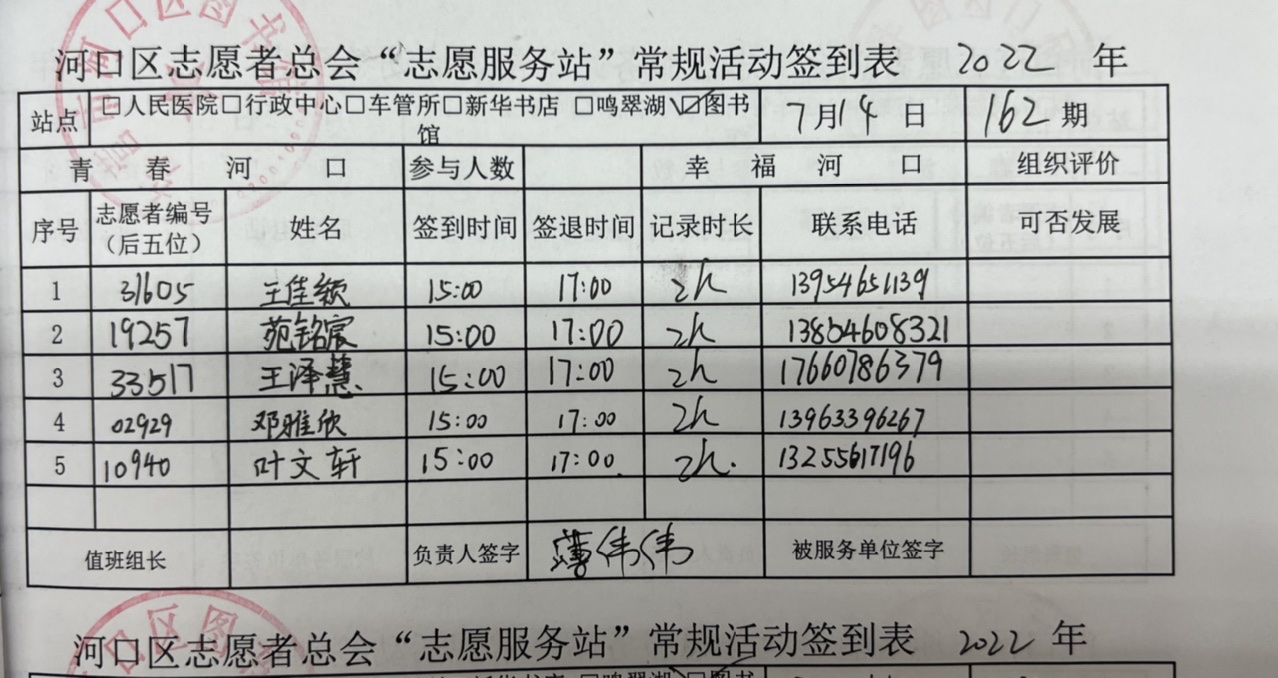 河口区志愿者总会“志愿服务站”常规活动签到表 2022 年
站点 □人民医院□行政中心□车管所□新华书店 □鸣翠湖☑图书馆 7月14日 162期
青春河口 参与人数 幸福河口 组织评价
序号 志愿者编号(后五位) 姓名 签到时间 签退时间 记录时长 联系电话 可否发展
1 31605 王佳颖 15:00 17:00 2h 13954651139
2 19257 苑铭宸 15:00 17:00 2h 13854608321
3 33517 王泽慧 15:00 17:00 2h 17660786379
4 02929 邓雅欣 15:00 17:00 2h 13963396267
5 10940 叶文轩 15:00 17:00 2h. 13255617196
值班组长 负责人签字 薄伟伟 被服务单位签字
河口区志愿者总会“志愿服务站”常规活动签到表 2022 年